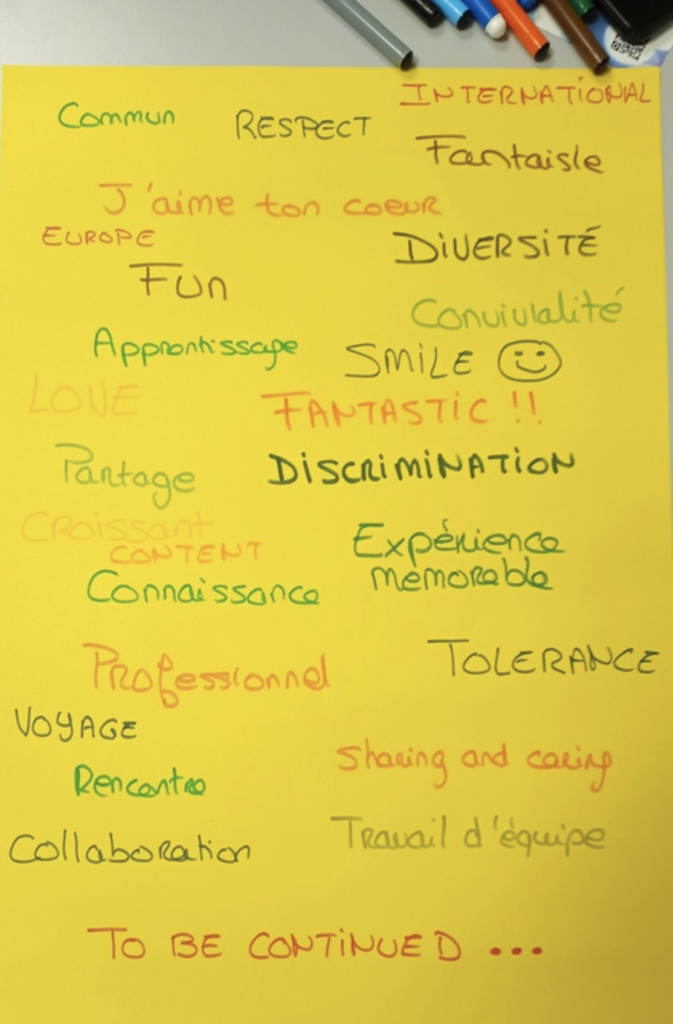 INTERNATIONAL
Commun
RESPECT
Fantaisie
J'aime ton coeur
EUROPE
DIVERSITÉ
Fun
Convivialité
Apprentissage
SMILE
LOVE
FANTASTIC !!
Partage
DISCRIMINATION
Croissant
CONTENT
Expérience
memorable
Connaissance
Professionnel
TOLERANCE
VOYAGE
Sharing and caring
Rencontre
Travail d'équipe
Collaboration
TO BE CONTINUED ...